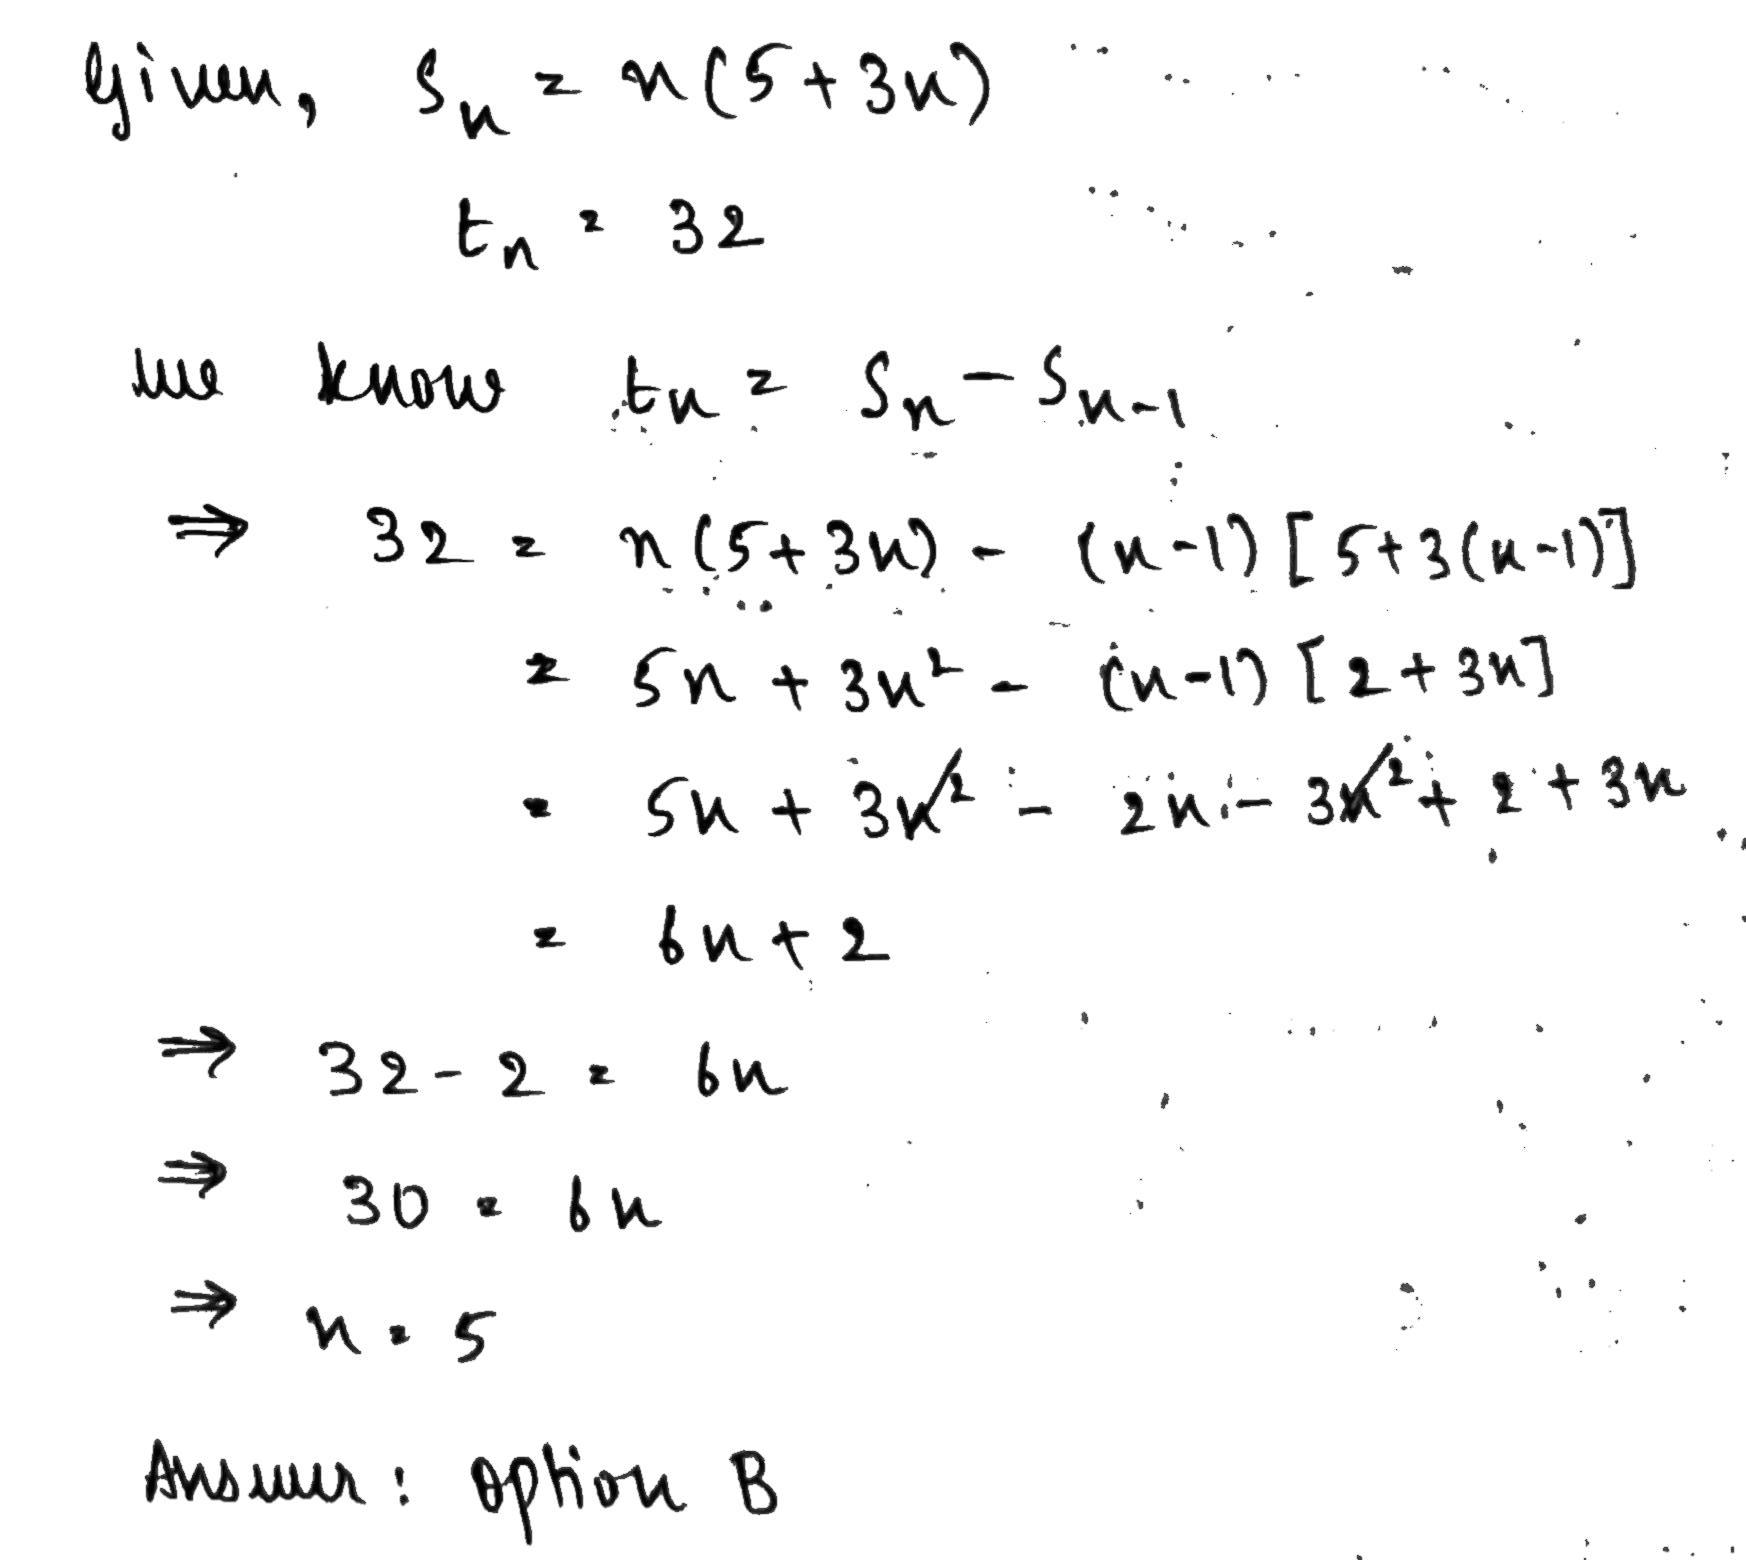 Given, Sₙ = n(5+3n)
tₙ = 32
we know tₙ = Sₙ - Sₙ₋₁
⇒ 32 = n(5+3n) - (n-1)[5+3(n-1)]
= 5n + 3n² - (n-1)[2+3n]
= 5n + 3n² - 2n - 3n² + 2 + 3n
= 6n + 2
⇒ 32-2 = 6n
⇒ 30 = 6n
⇒ n = 5
Answer: option B